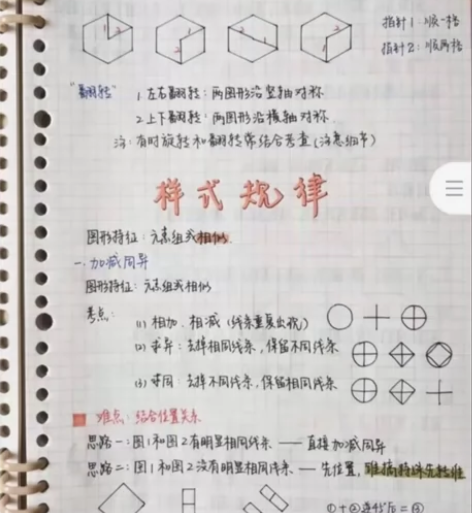 指针1：顺一格
指针2：顺两格
1 2
1 2
1 2
1 2
"翻转" 1.左右翻转：两图形沿竖轴对称
2.上下翻转：两图形沿横轴对称.
注：有时旋转和翻转常结合考查(注意细节)
样式规律
图形特征：元素组成相似.
一.加减同异
图形特征：元素组成相似
考点：(1)相加、相减(线条重复出现)
(2)求异：去掉相同线条，保留不同线条
(3)求同：去掉不同线条，保留相同线条
难点：结合位置关系
思路一：图1和图2有明显相同线条——直接加减同异
思路二：图1和图2没有明显相同线条——先位置，
①+②逆转后=③